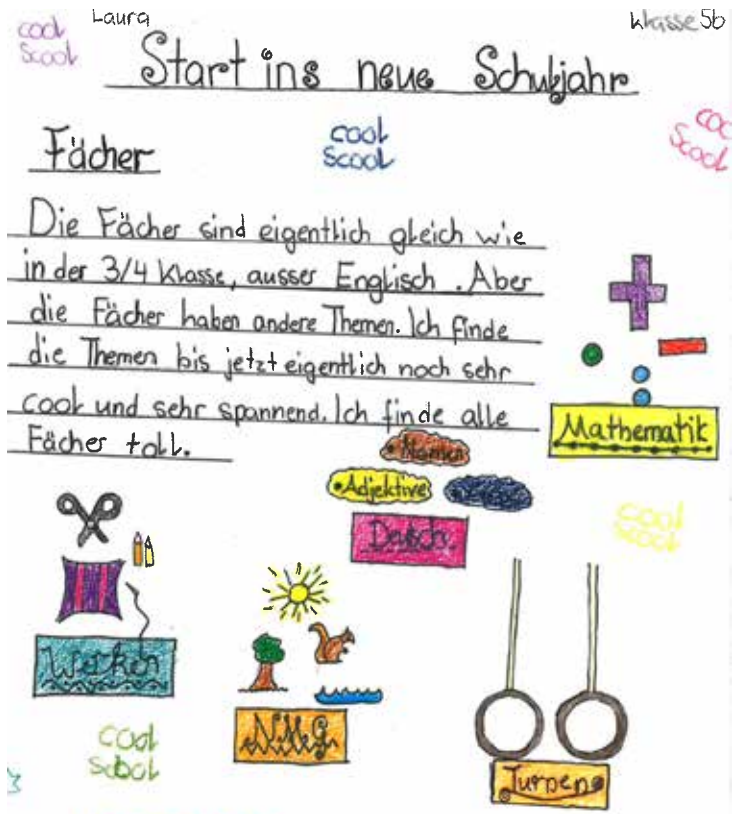 Laura
Klasse 5b
cool
Scool
Start ins neue Schuljahr
Fächer
cool
Scool
Scool
Die Fächer sind eigentlich gleich wie
in der 3/4 Klasse, ausser Englisch. Aber
die Fächer haben andere Themen. Ich finde
die Themen bis jetzt eigentlich noch sehr
cool und sehr spannend. Ich finde alle
Fächer toll.
Mathematik
Nomen
Adjektive
Deutsch
cool
Scool
Werken
NMG
Turnen
cool
Scool